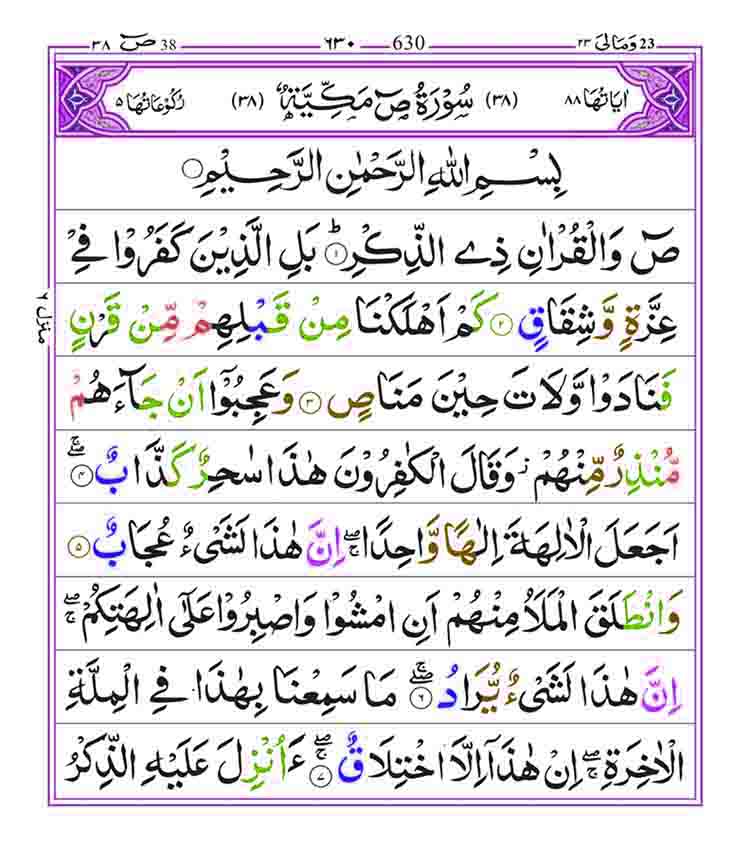 ٣٨ صٓ 38 ٦٣٠ 630 ٢٣ وَمَالِیَ 23
اٰيَاتُهَا ٨٨ (٣٨) سُوْرَةُ صٓ مَكِّيَّةٌ (٣٨) رُكُوْعَاتُهَا ٥
بِسْمِ اللّٰهِ الرَّحْمٰنِ الرَّحِيْمِ
صٓ وَالْقُرْاٰنِ ذِي الذِّكْرِؕ ١ بَلِ الَّذِيْنَ كَفَرُوْا فِيْ
عِزَّةٍ وَّشِقَاقٍ ٢ كَمْ اَهْلَكْنَا مِنْ قَبْلِهِمْ مِّنْ قَرْنٍ
فَنَادَوْا وَّلَاتَ حِيْنَ مَنَاصٍ ٣ وَعَجِبُوْۤا اَنْ جَآءَهُمْ
مُّنْذِرٌ مِّنْهُمْ ز وَقَالَ الْكٰفِرُوْنَ هٰذَا سٰحِرٌ كَذَّابٌ ۖۚ ٤
اَجَعَلَ الْاٰلِهَةَ اِلٰهًا وَّاحِدًا ۖۚ اِنَّ هٰذَا لَشَیْءٌ عُجَابٌ ٥
وَانْطَلَقَ الْمَلَاُ مِنْهُمْ اَنِ امْشُوْا وَاصْبِرُوْا عَلٰٓى اٰلِهَتِكُمْ ۖۚ
اِنَّ هٰذَا لَشَیْءٌ يُّرَادُ ۖۚ ٦ مَا سَمِعْنَا بِهٰذَا فِي الْمِلَّةِ
الْاٰخِرَةِ ۖۚ اِنْ هٰذَاۤ اِلَّا اخْتِلَاقٌ ۖۚ ٧ ءَاُنْزِلَ عَلَيْهِ الذِّكْرُ
منزل ٦